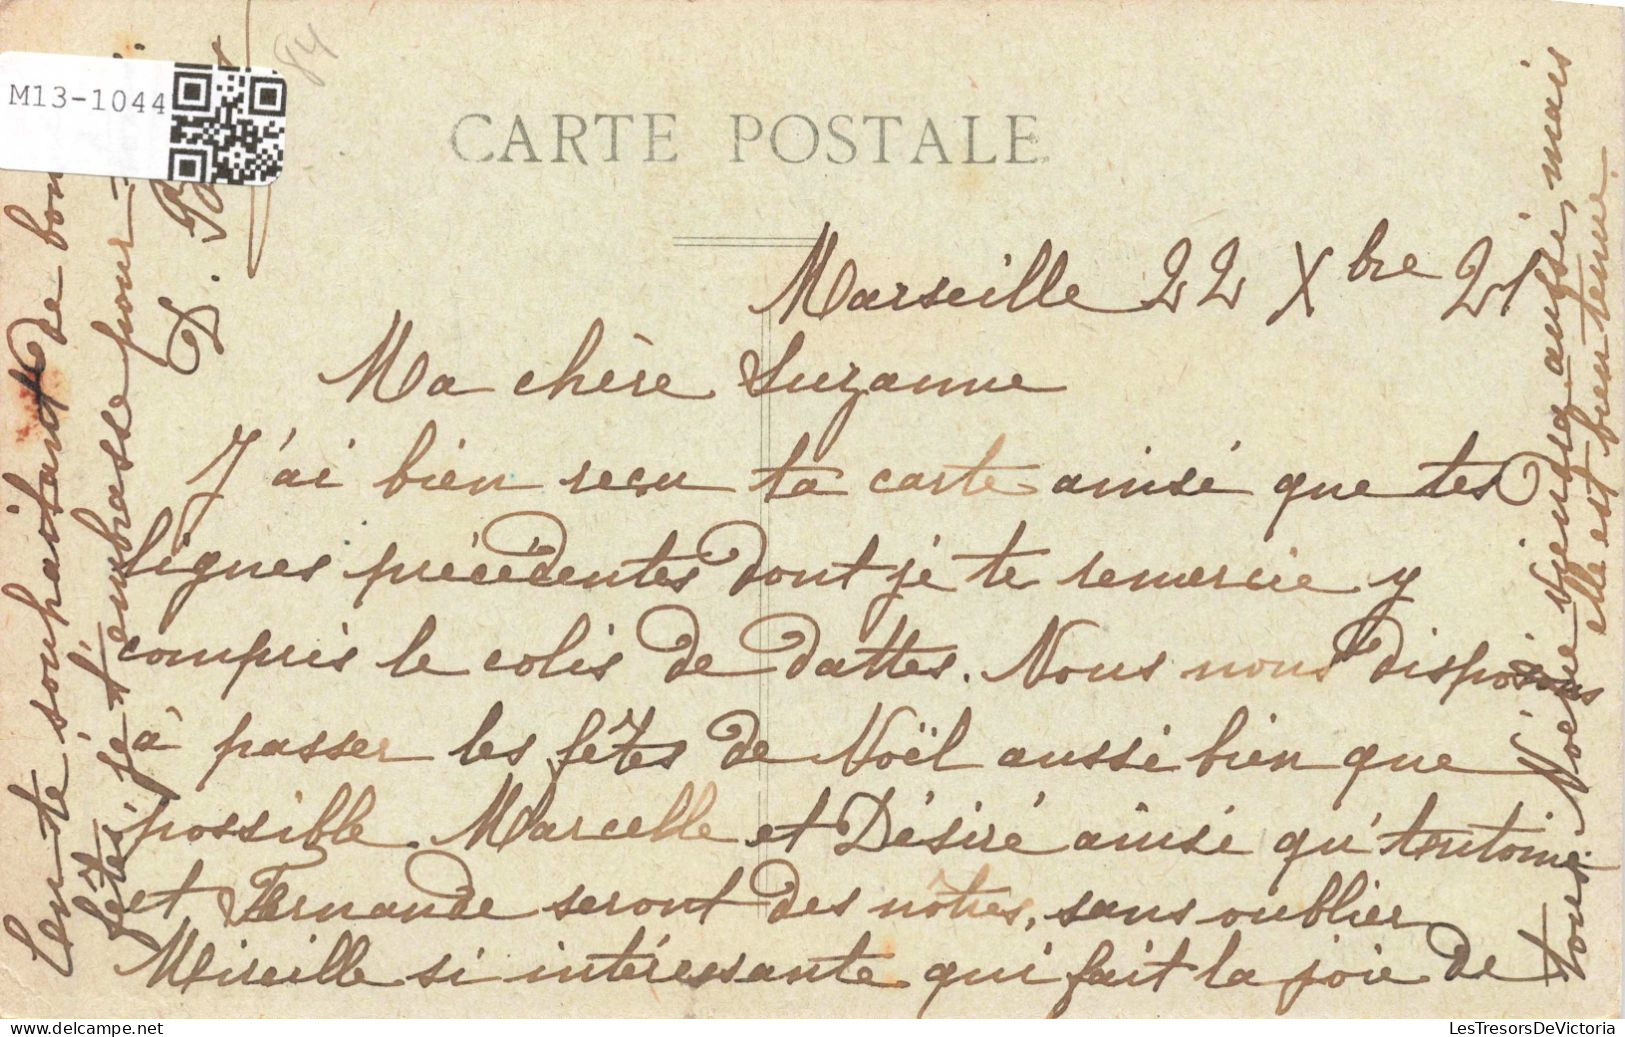 M13-1044
84
CARTE POSTALE
Marseille 22 Xbre 21
Ma chère Suzanne
J'ai bien reçu ta carte ainsi que tes
lignes précédentes dont je te remercie y
compris le colis de dattes. Nous nous disposons
à passer les fêtes de Noël aussi bien que
possible. Marcelle et Désiré ainsi qu'Antoine
et Fernande seront des nôtres, sans oublier
Mireille si intéressante qui fait la joie de
tous. Noëlie viendra aussi, mais
elle est bien tenue.
En te souhaitant de bon
fêtes, je t'embrasse pour
D.
LesTresorsDeVictoria
ma-shops.com